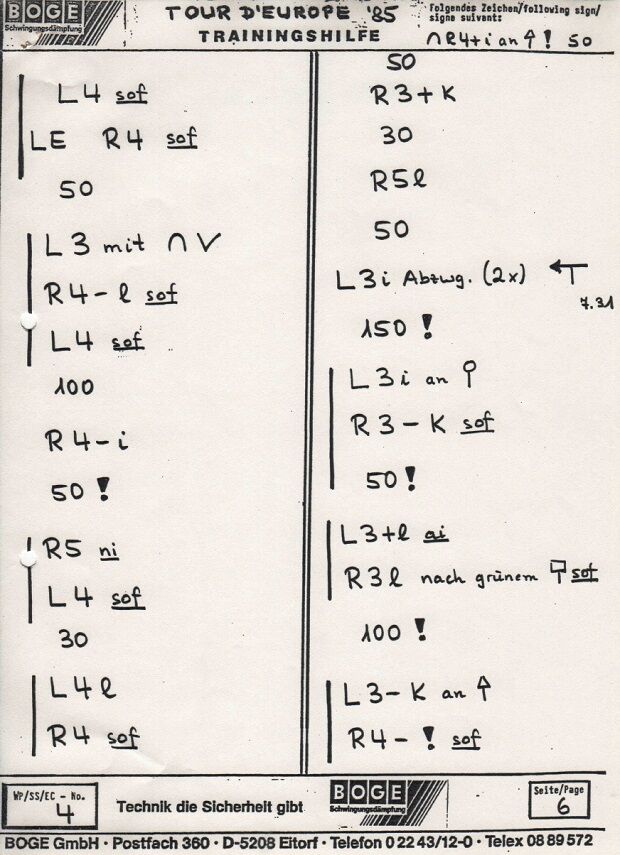 BOGE
Schwingungsdämpfung
TOUR D'EUROPE '85
TRAININGSHILFE
Folgendes Zeichen/following sign/
signe suivant:
∩R4+i an ↑! 50
L4 sof
LE R4 sof
50
L3 mit ∩ V
R4-l sof
L4 sof
100
R4-i
50 !
R5 ni
L4 sof
30
L4l
R4 sof
50
R3+K
30
R5l
50
L3i Abzwg. (2x)
7.31
150 !
L3i an
R3-K sof
50!
L3+l ai
R3l nach grünem sof
100 !
L3-K an ↑
R4-! sof
WP/SS/EC - No.
4
Technik die Sicherheit gibt
BOGE
Schwingungsdämpfung
Seite/Page
6
BOGE GmbH · Postfach 360 · D-5208 Eitorf · Telefon 0 22 43/12-0 · Telex 08 89 572